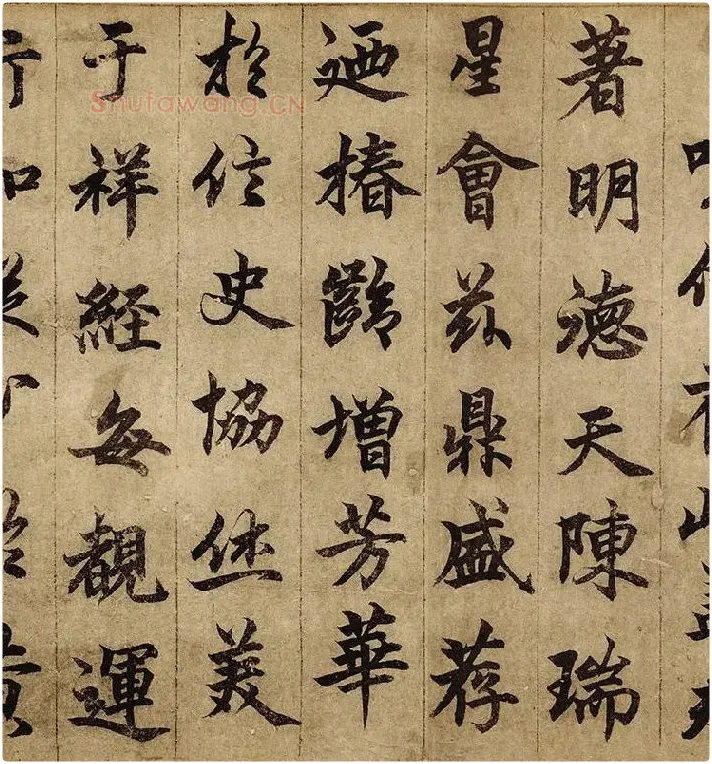 著明德天陳瑞
星會茲鼎盛荐
迺椿齡增芳華
於信史協休美
于祥經每觀運
Shufawang.CN